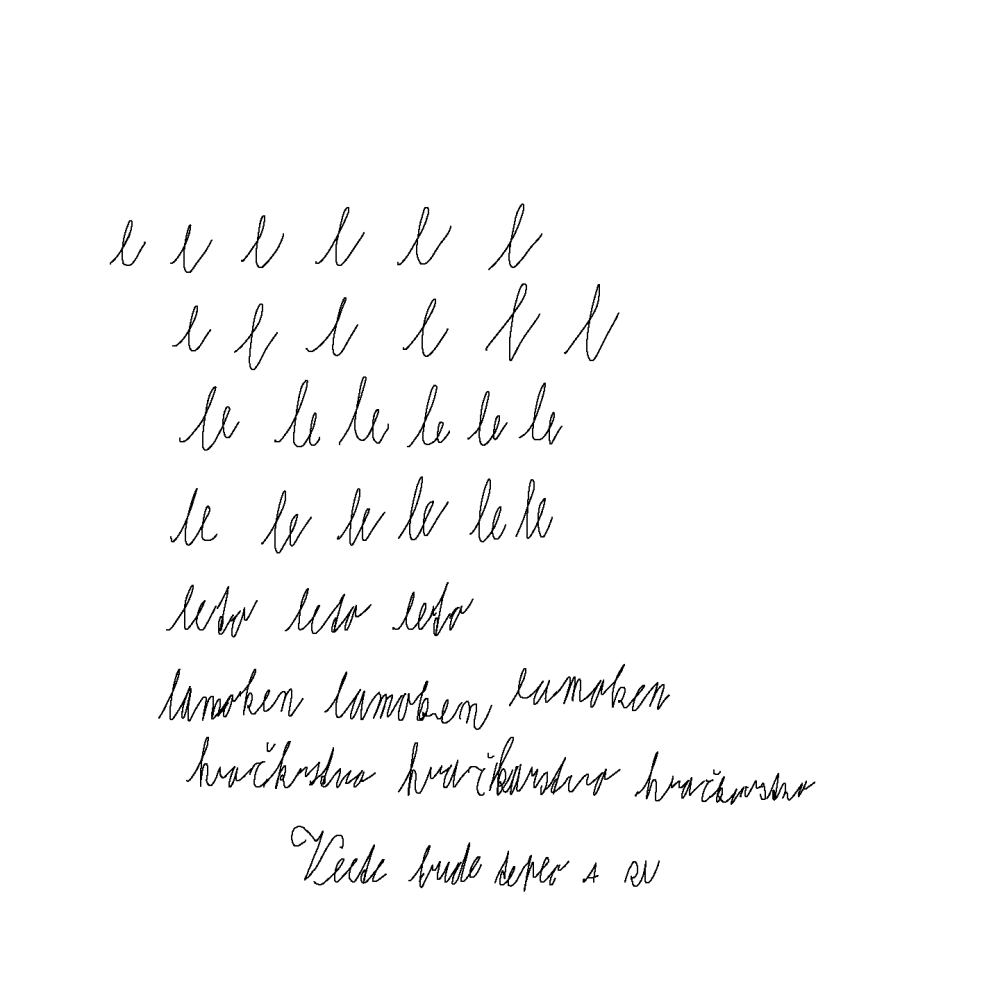 l l l l l l
l l l l l l
le le le le le le
le le le le le le
leto leto leto
lamoken lamoken lamoken
hračkarstvo hračkarstvo hračkarstvo
bude A RV